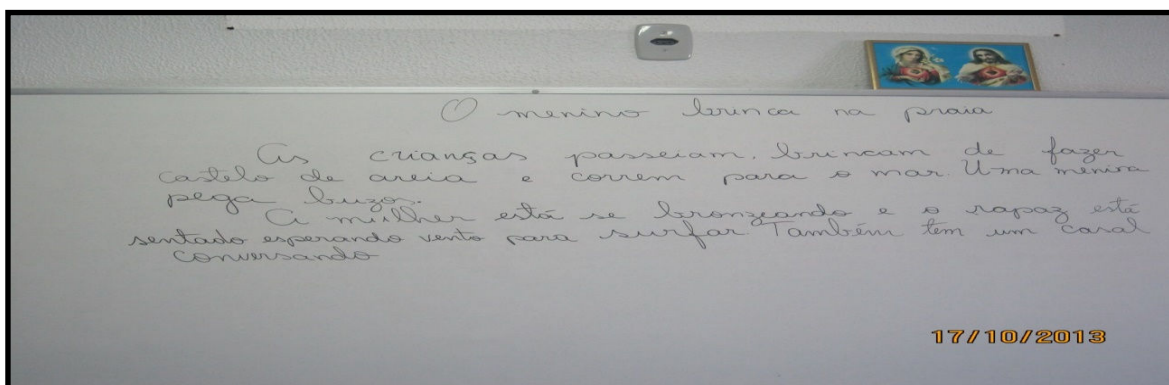 O menino brinca na praia
As crianças passeiam, brincam de fazer
castelo de areia e correm para o mar. Uma menina
pega buzos.
A mulher está se bronzeando e o rapaz está
sentado esperando vento para surfar. Também tem um casal
conversando
17/10/2013